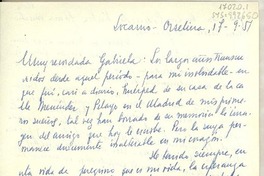 Locarno - Orselina, 17-9-51
Muy recordada Gabriela: Los largos años transcu-
rridos desde aquel período - para mí inolvidable - en
que fuí, casi a diario, huésped de su casa de la ca-
lle Menéndez y Pelayo en el Madrid de mis prime-
ros sueños, tal vez han borrado de su memoria la ima-
gen del amigo que hoy le escribe. Pero la suya per-
manece dulcemente inalterable en mi corazón.
He tenido siempre, en
mi vida de peregrino que es mi vida, la esperanza